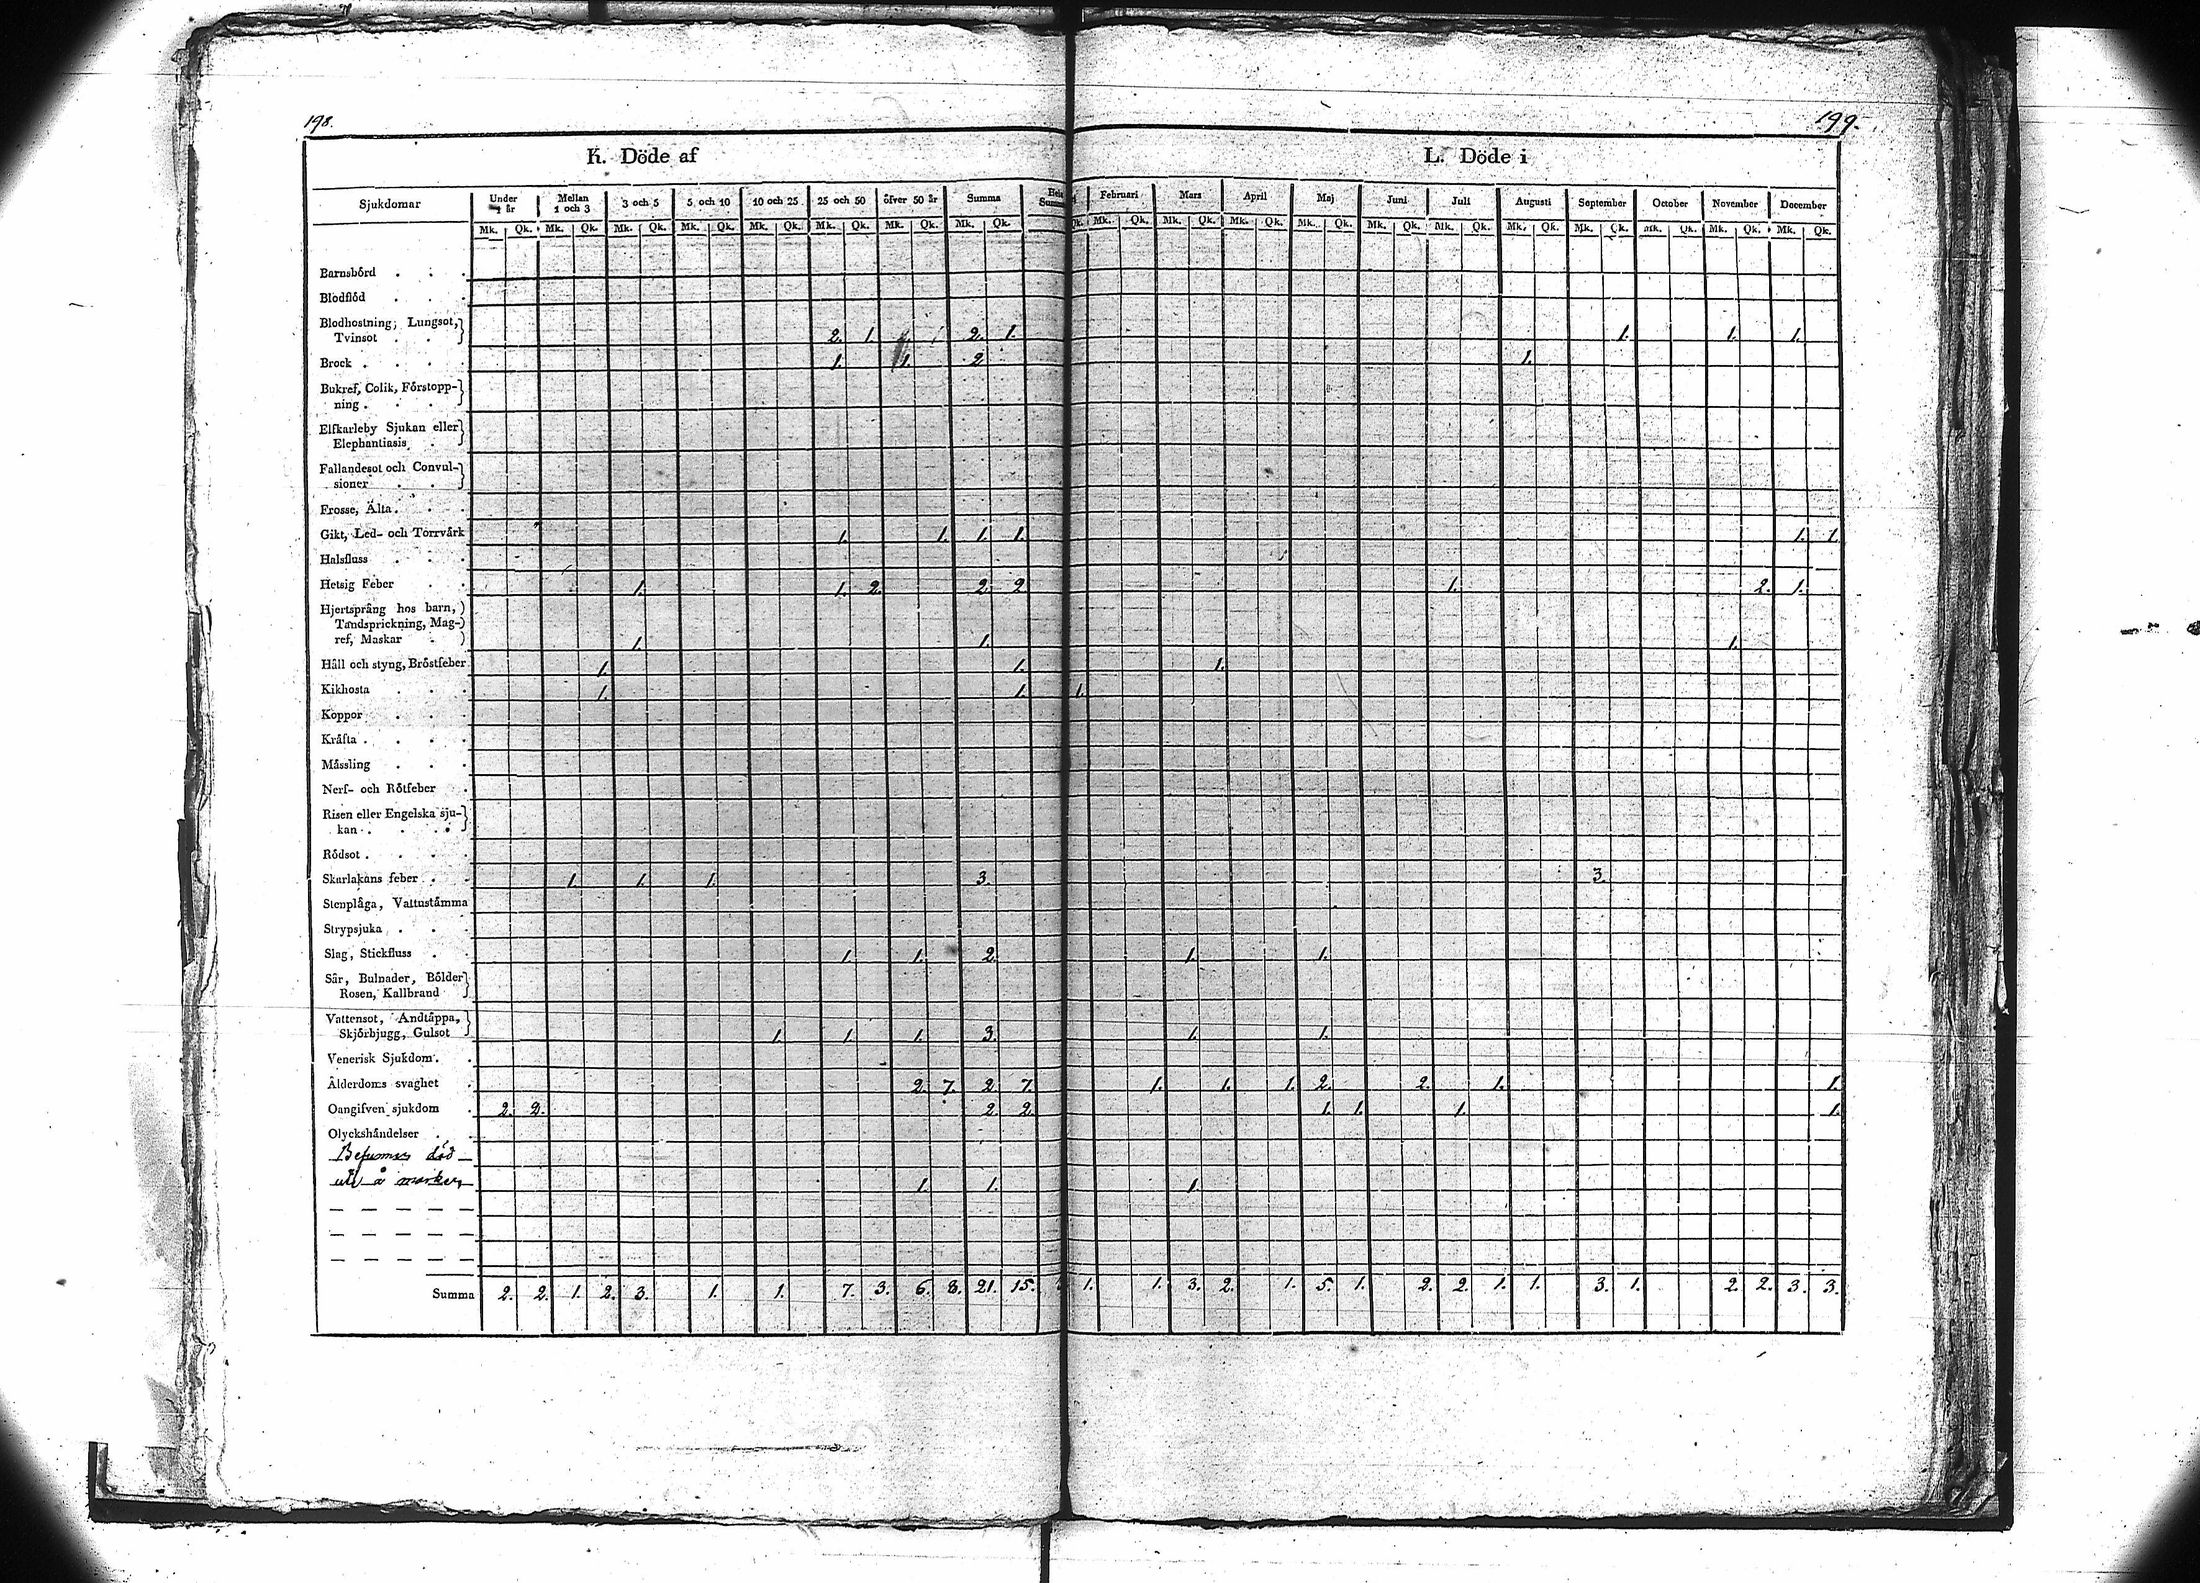 198.
199.
K. Döde af
L. Döde i
Sjukdomar Under 1 år Mellan 1 och 3 3 och 5 5 och 10 10 och 25 25 och 50 öfver 50 år Summa Hela Summa
Februari Mars April Maj Juni Juli Augusti September October November December
Mk. Qk. Mk. Qk. Mk. Qk. Mk. Qk. Mk. Qk. Mk. Qk. Mk. Qk. Mk. Qk.
Qk. Mk. Qk. Mk. Qk. Mk. Qk. Mk. Qk. Mk. Qk. Mk. Qk. Mk. Qk. Mk. Qk. Mk. Qk. Mk. Qk. Mk. Qk.
Barnsbörd . . .
Blodflöd . . .
Blodhostning, Lungsot,
Tvinsot . . 2. 1. 2. 1. 1. 1. 1.
Brock . . . . 1. 1. 2. 1.
Bukref, Colik, Förstopp-
ning . . .
Elfkarleby Sjukan eller
Elephantiasis .
Fallandesot och Convul-
sioner . .
Frosse, Älta . . .
Gikt, Led- och Torrvärk 1. 1. 1. 1. 1. 1.
Halsfluss . . .
Hetsig Feber . . 1. 1. 2. 2. 2 1. 2. 1.
Hjertsprång hos barn,
Tandsprickning, Mag-
ref, Maskar . 1. 1. 1.
Håll och styng, Bröstfeber 1. 1. 1.
Kikhosta . . . 1. 1. 1.
Koppor . . .
Kräfta . . . .
Mässling . . .
Nerf- och Rötfeber .
Risen eller Engelska sju-
kan . . . .
Rödsot . . . .
Skarlakans feber . . 1. 1. 1. 3. 3.
Stenplåga, Vattustämma
Strypsjuka . . .
Slag, Stickfluss . . 1. 1. 2. 1. 1.
Sår, Bulnader, Bölder
Rosen, Kallbrand
Vattensot, Andtäppa,
Skjörbjugg, Gulsot 1. 1. 1. 3. 1. 1.
Venerisk Sjukdom . .
Ålderdoms svaghet . 2. 7. 2. 7. 1. 1. 1. 2. 2. 1. 1.
Oangifven sjukdom . 2. 2. 2. 2. 1. 1. 1. 1.
Olyckshändelser . .
död
ute å marken 1. 1. 1.
Summa 2. 2. 1. 2. 3. 1. 1. 7. 3. 6. 8. 21. 15. 1. 1. 3. 2. 1. 5. 1. 2. 2. 1. 1. 3. 1. 2. 2. 3. 3.